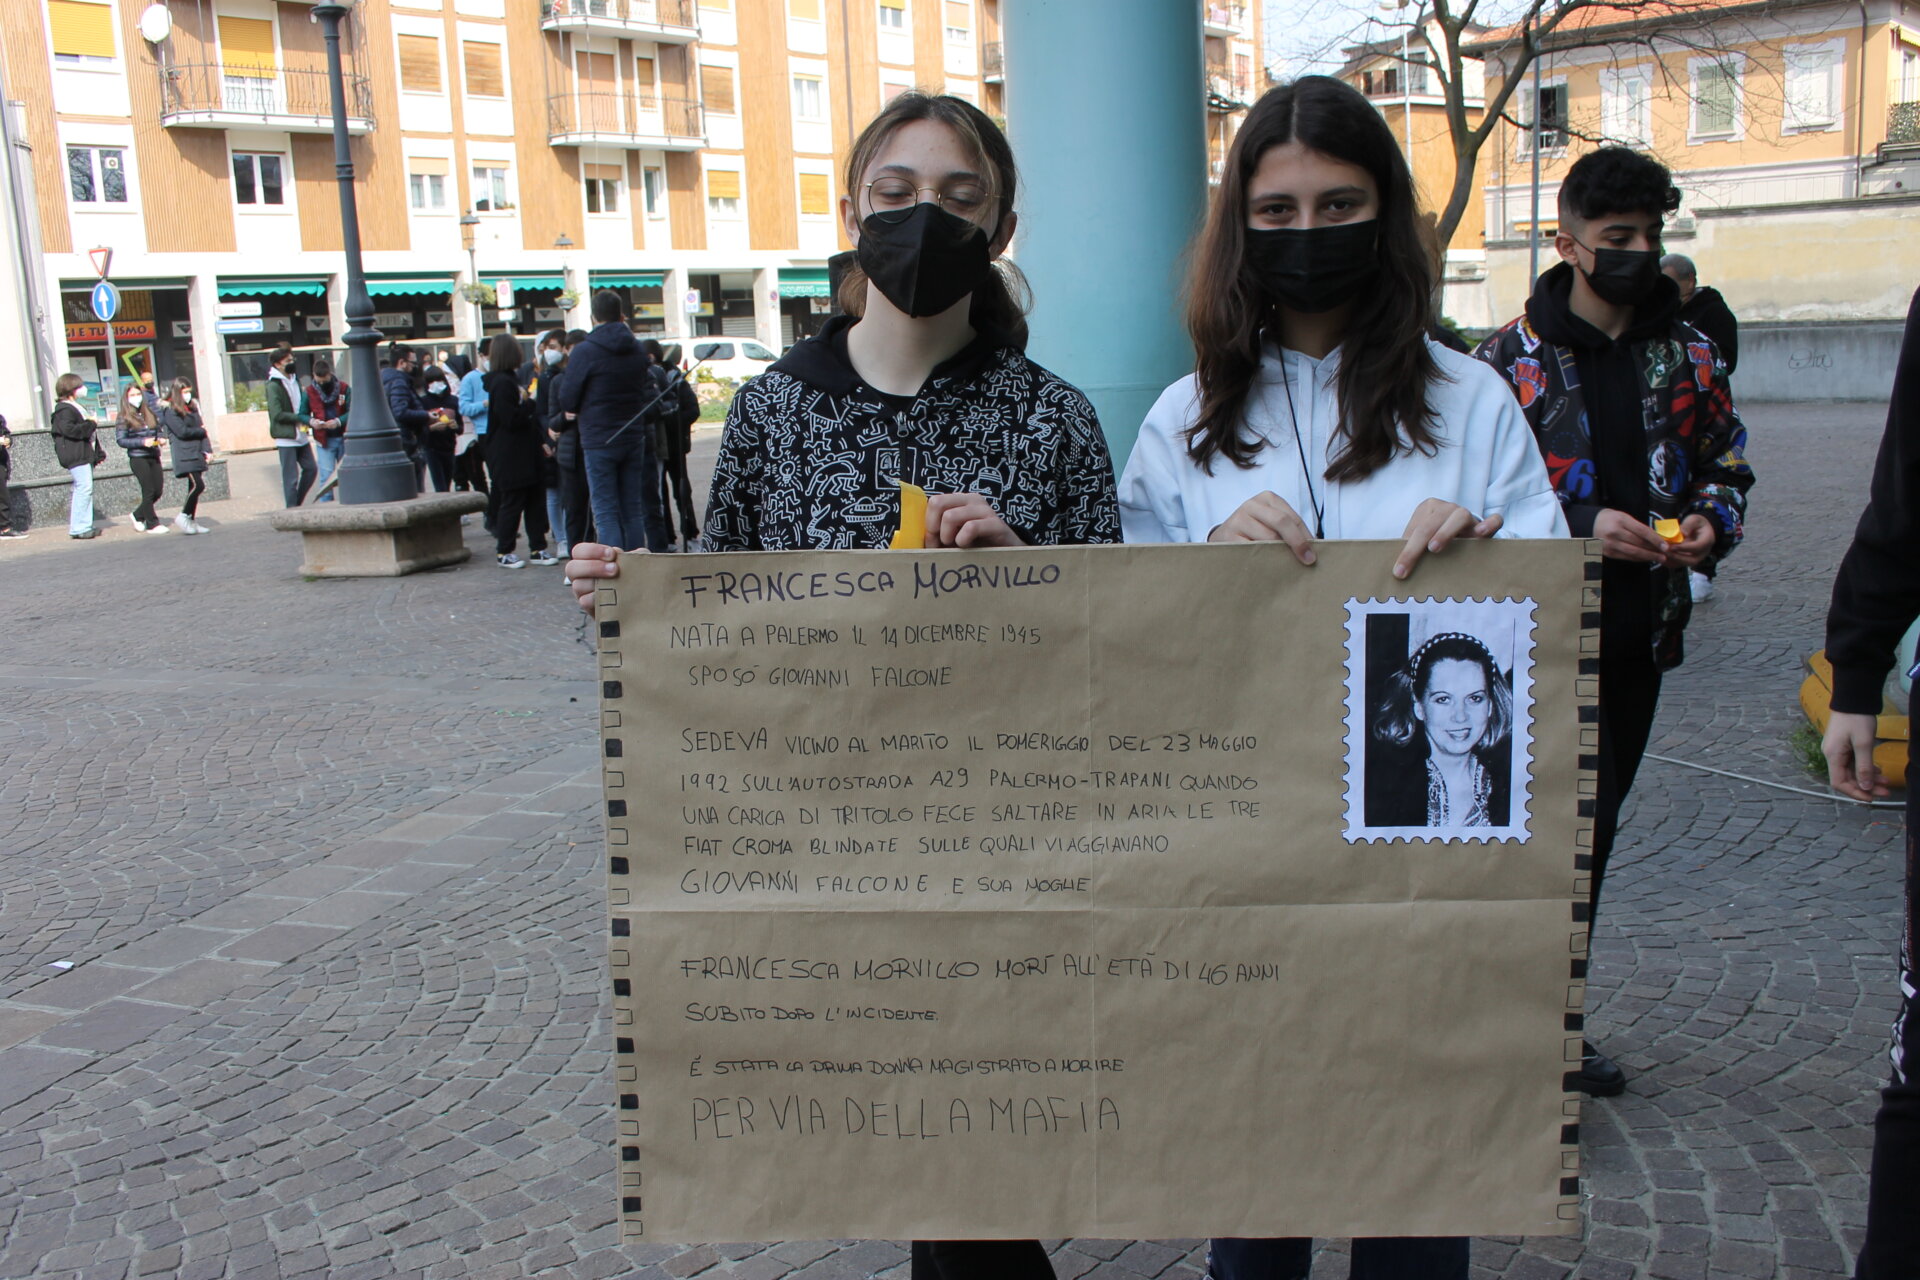 FRANCESCA MORVILLO
NATA A PALERMO IL 14 DICEMBRE 1945
SPOSÓ GIOVANNI FALCONE
SEDEVA VICINO AL MARITO IL POMERIGGIO DEL 23 MAGGIO
1992 SULL'AUTOSTRADA A29 PALERMO-TRAPANI QUANDO
UNA CARICA DI TRITOLO FECE SALTARE IN ARIA LE TRE
FIAT CROMA BLINDATE SULLE QUALI VIAGGIAVANO
GIOVANNI FALCONE E SUA MOGLIE
FRANCESCA MORVILLO MORÍ ALL'ETÀ DI 46 ANNI
SUBITO DOPO L'INCIDENTE.
É STATA LA PRIMA DONNA MAGISTRATO A MORIRE
PER VIA DELLA MAFIA
GI E TURISMO
76